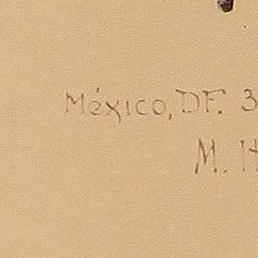 México, DF. 3
M. It